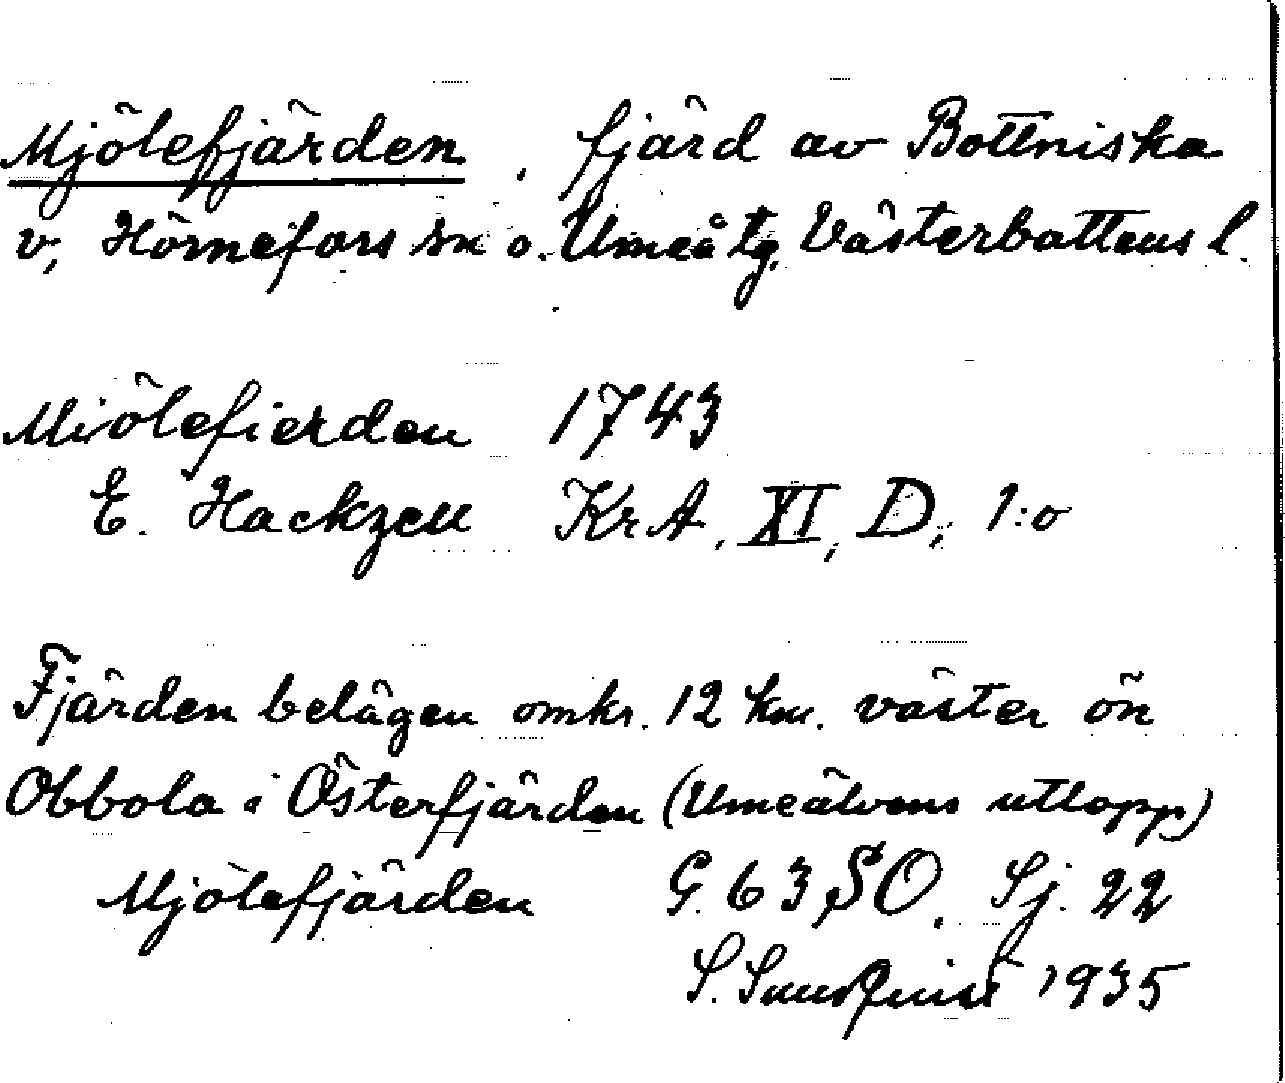 Mjölefjärden, fjärd av Bottniska
v, Hörnefors sn o. Umeå tg, Västerbottens l.
Miölefierden 1743
E. Hackzell KrA, XI, D, 1:o
Fjärden belägen omkr. 12 km. väster ön
Obbola i Österfjärden (Umeälvens utlopp)
Mjölefjärden G. 63 SO, Sj. 22
S. Sundquist 1935